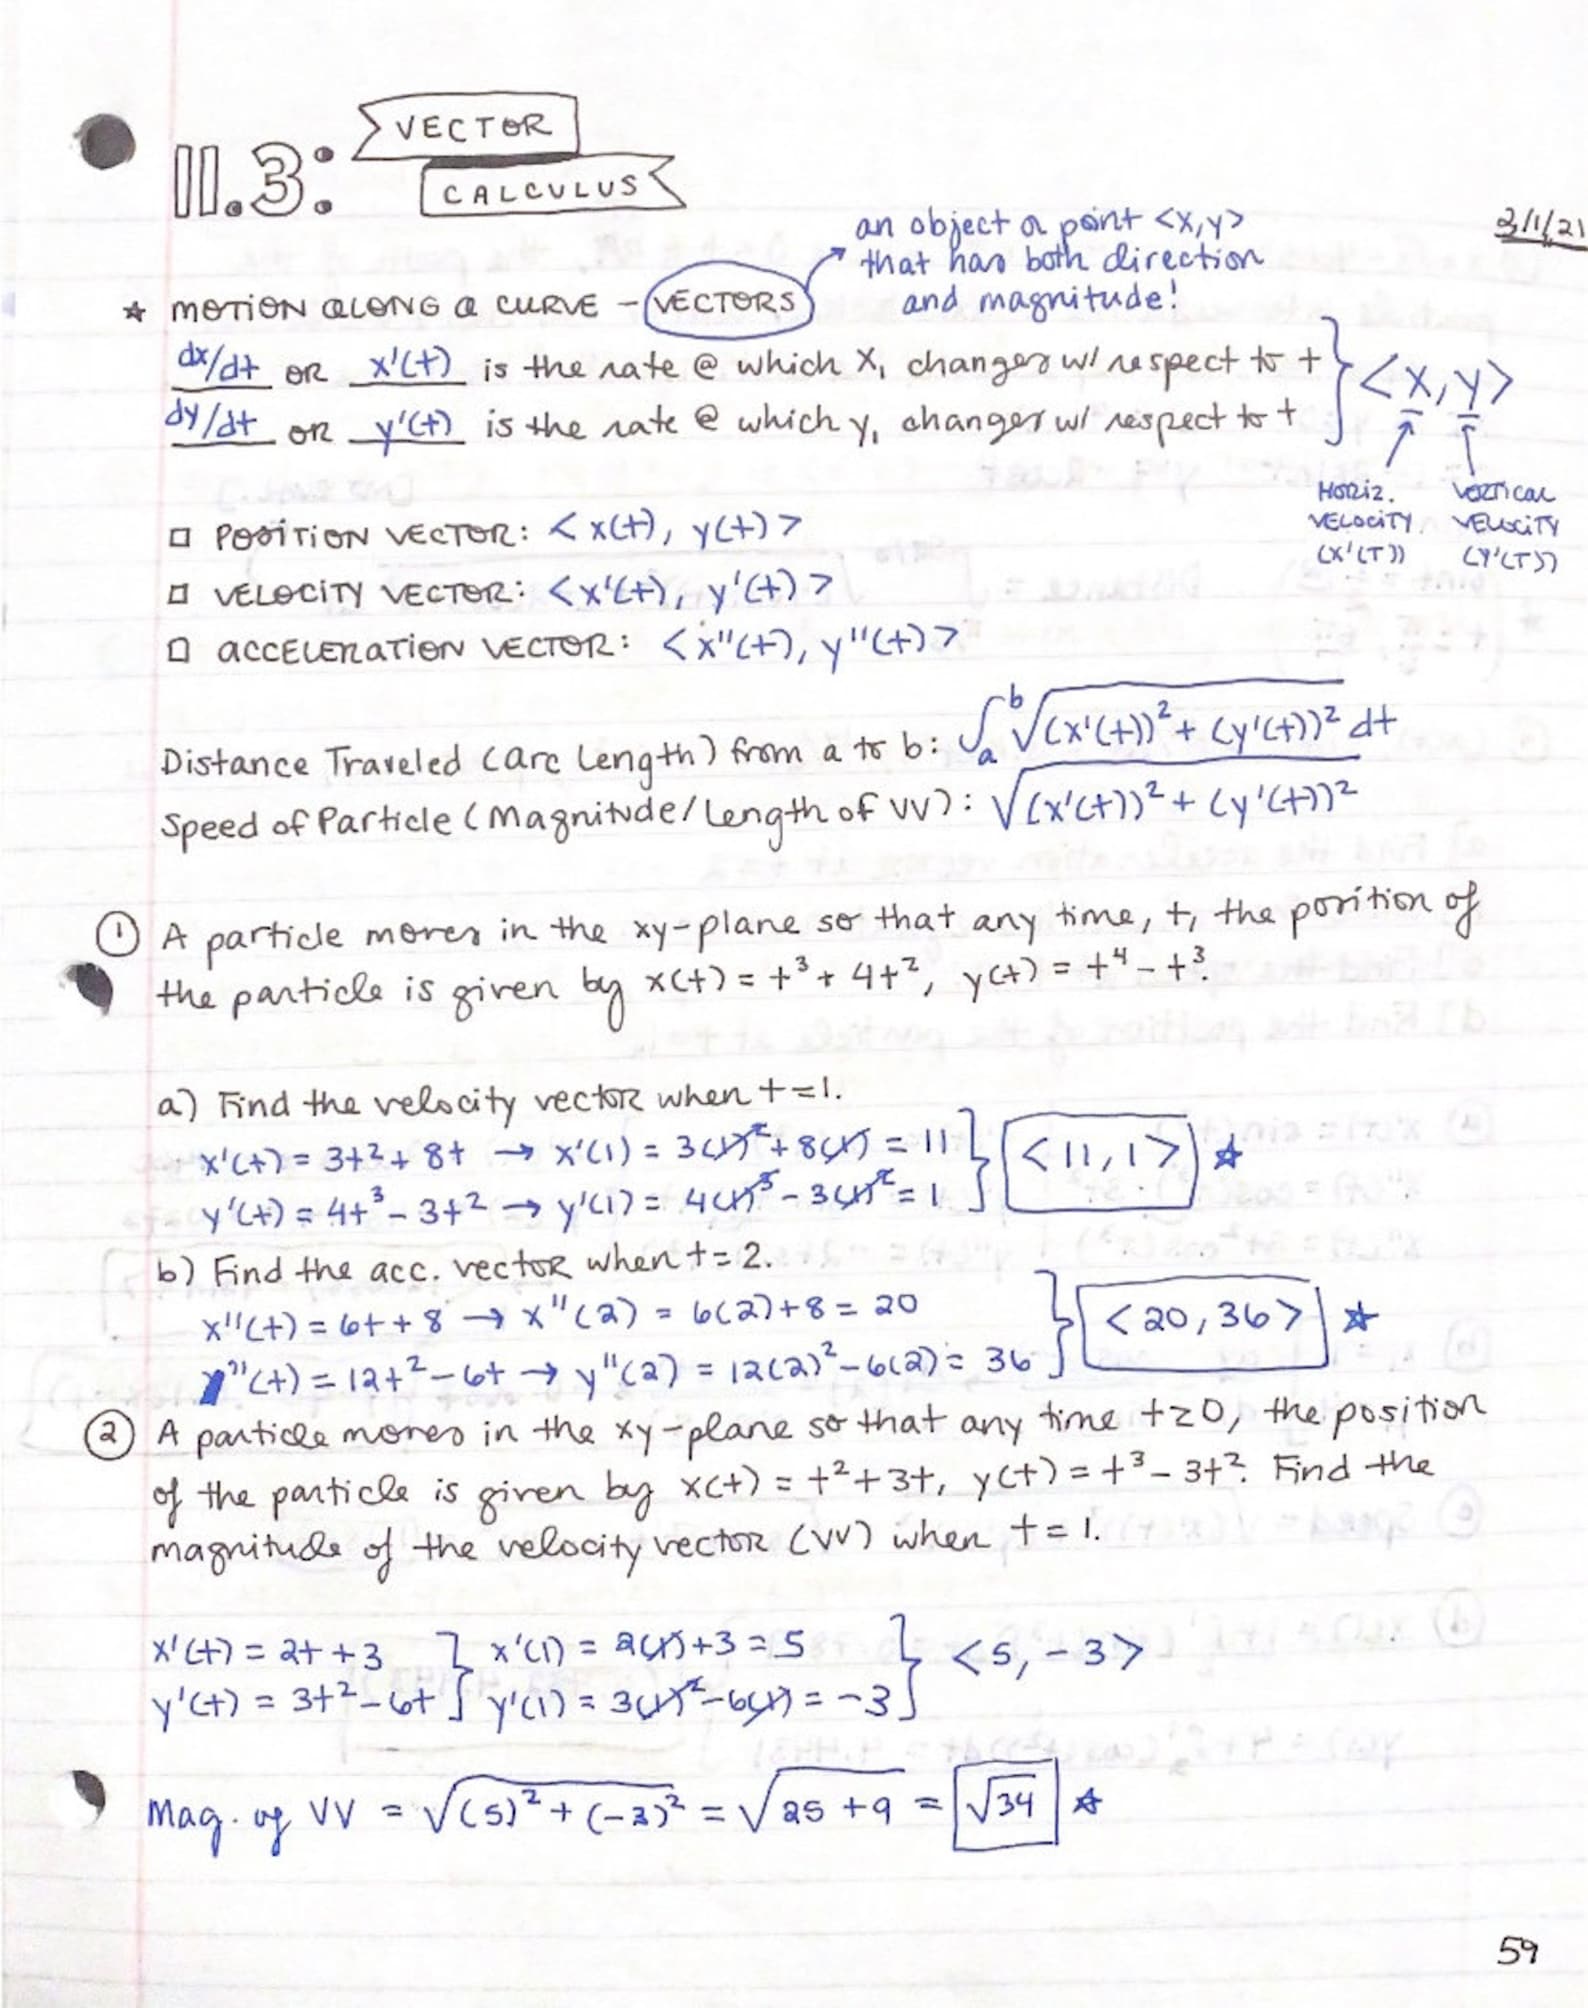 11.3: VECTOR
CALCULUS
an object or point <x,y>
that has both direction
and magnitude!
2/1/21
☆ MOTION ALONG A CURVE – VECTORS
dx/dt OR x'(t) is the rate @ which x, changes w/ respect to t
dy/dt OR y'(t) is the rate @ which y, changes w/ respect to t
<x, y>
HORIZ. VELOCITY (X'(T))
VERTICAL VELOCITY (Y'(T))
□ POSITION VECTOR: <x(t), y(t)>
□ VELOCITY VECTOR: <x'(t), y'(t)>
□ ACCELERATION VECTOR: <x''(t), y''(t)>
Distance Traveled (Arc Length) from a to b: ∫ₐᵇ √((x'(t))² + (y'(t))²) dt
Speed of Particle (Magnitude/Length of VV): √((x'(t))² + (y'(t))²)
① A particle moves in the xy-plane so that any time, t, the position of
the particle is given by x(t) = t³ + 4t², y(t) = t⁴ - t³.
a) Find the velocity vector when t=1.
x'(t) = 3t² + 8t → x'(1) = 3(1)² + 8(1) = 11
y'(t) = 4t³ - 3t² → y'(1) = 4(1)³ - 3(1)² = 1
<11, 1> ☆
b) Find the acc. vector when t=2.
x''(t) = 6t + 8 → x''(2) = 6(2)+8 = 20
y''(t) = 12t² - 6t → y''(2) = 12(2)² - 6(2) = 36
<20, 36> ☆
② A particle moves in the xy-plane so that any time t≥0, the position
of the particle is given by x(t) = t² + 3t, y(t) = t³ - 3t². Find the
magnitude of the velocity vector (VV) when t = 1.
x'(t) = 2t + 3 x'(1) = 2(1)+3 = 5
y'(t) = 3t² - 6t y'(1) = 3(1)² - 6(1) = -3
<5, -3>
Mag. of VV = √((5)² + (-3)²) = √(25 + 9) = √34 ☆
59